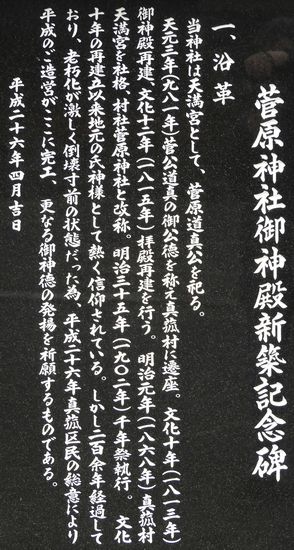 菅原神社御神殿新築記念碑
一、沿革
当神社は天満宮として、菅原道真公を祀る。
天元三年(九八一年)菅公道真の御公徳を称え真菰村に遷座。文化十年(一八一三年)
御神殿再建 文化十二年(一八一五年)拝殿再建を行う。明治元年(一八六八年)真菰村
天満宮を社格、村社菅原神社と改称。明治三十五年(一九〇二年)千年祭執行。 文化
十年の再建立以来地元の氏神様として熱く信仰されている。しかし二百余年経過して
おり、老朽化が激しく倒壊寸前の状態だった為、平成二十六年真菰区民の総意により
平成のご造営がここに完工、更なる御神徳の発揚を祈願するものである。
平成二十六年四月吉日